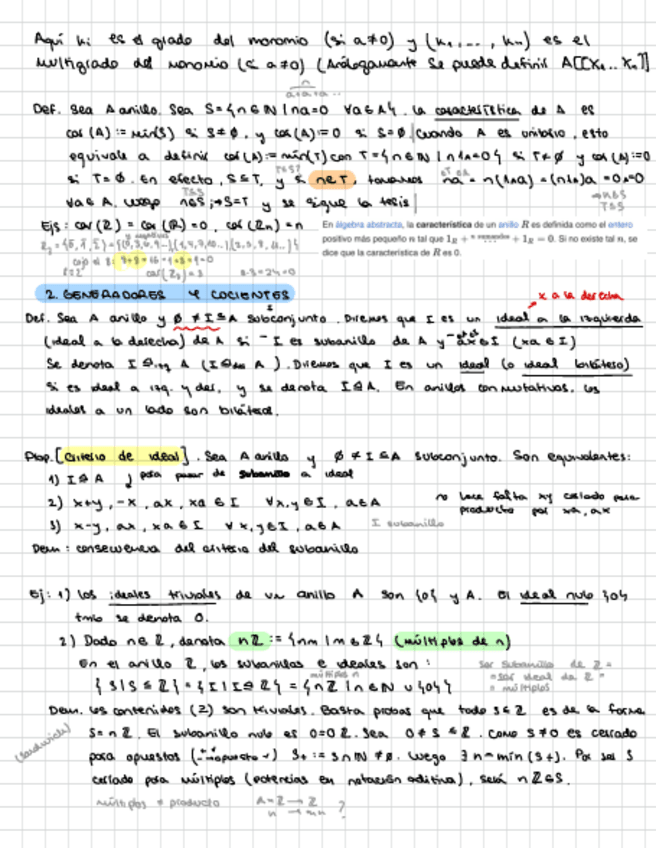 Aquí ki es el grado del monomio (si a≠0) y (k₁,..., kₙ) es el
multigrado del monomio (si a≠0) (Análogamente se puede definir A[[x₁...xₙ]]
n
a+a+...
Def. Sea A anillo. Sea S={n∈ℕ | na=0 ∀a∈A}. La característica de A es
car(A) := min(S) si S≠∅, y car(A):=0 si S=∅. Cuando A es unitario, esto
equivale a definir car(A):=min(T) con T={n∈ℕ | n1_A=0} si T≠∅ y car(A):=0
si T=∅. En efecto, S⊆T, y si n∈T, tenemos na = n(1_A a) = (n1_A)a = 0·a=0
∀a∈A. Luego n∈S ⇒ S=T y se sigue la tesis
T⊆S
Ejs: car(ℤ) = car(ℝ)=0, car(ℤₙ)=n
En álgebra abstracta, la característica de un anillo R es definida como el entero
positivo más pequeño n tal que 1_R + ⋯ + 1_R = 0. Si no existe tal n, se
dice que la característica de R es 0.
car(ℤ₃)=3
2. GENERADORES Y COCIENTES
x a la derecha
Def. Sea A anillo y ∅ ≠ I ⊆ A subconjunto. Diremos que I es un ideal a la izquierda
(ideal a la derecha) de A si - I es subanillo de A y - ax∈I (xa∈I)
Se denota I ⊴izq A (I ⊴der A). Diremos que I es un ideal (o ideal bilátero)
si es ideal a izq. y der, y se denota I⊴A. En anillos conmutativos, los
ideales a un lado son bilátera.
Prop. [Criterio de ideal]. Sea A anillo y ∅ ≠ I ⊆ A subconjunto. Son equivalentes:
1) I⊴A ) para pasar de subanillo a ideal
2) x+y, -x, ax, xa ∈ I ∀x,y∈I, a∈A
no hace falta xy cerrado para
producto por xa, ax
3) x-y, ax, xa ∈ I ∀x,y∈I, a∈A I subanillo
Dem: consecuencia del criterio del subanillo
Ej: 1) Los ideales triviales de un anillo A son {0} y A. El ideal nulo {0}
tmb se denota 0.
2) Dado n∈ℤ, denota nℤ := {nm | m∈ℤ} (múltiplos de n)
En el anillo ℤ, los subanillos e ideales son:
ser subanillo de ℤ =
= ser ideal de ℤ =
= múltiplos
múltiplos n
{S | S ≤ ℤ} = {I | I⊴ℤ} = {nℤ | n∈ℕ ∪ {0}}
Dem. Los contenidos (2) son triviales. Basta probar que todo S≤ℤ es de la forma
S=nℤ. El subanillo nulo es 0=0ℤ. Sea 0≠S≤ℤ. Como S≠0 es cerrado
(sandwich)
para opuestos S₊ := S∩ℕ ≠∅. Luego ∃ n=min(S₊). Por ser S
cerrado para múltiplos (potencias en notación aditiva), será nℤ⊆S.
múltiplos = producto A=ℤ→ℤ ?
n → mn